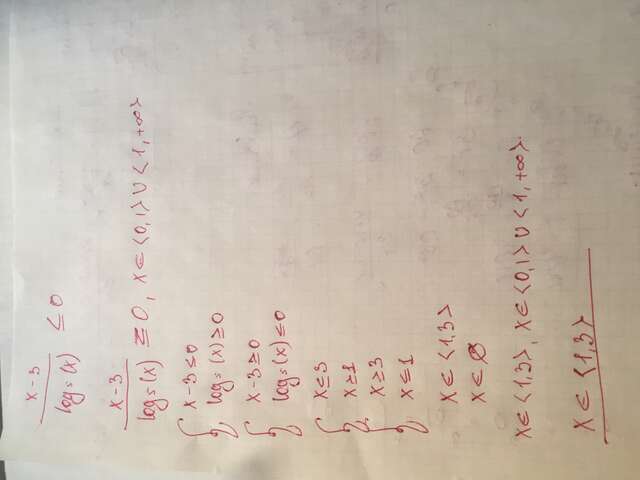 x-3
log₅(x) ≤ 0
x-3
log₅(x) ≤ 0, x ∈ <0,1> ∪ <1,+∞>
{ x-3 ≤ 0
log₅(x) ≥ 0
{ x-3 ≥ 0
log₅(x) ≤ 0
{ x ≤ 3
x ≥ 1
{ x ≥ 3
x ≤ 1
x ∈ <1,3>
x ∈ ∅
x ∈ <1,3>, x ∈ <0,1> ∪ <1,+∞>
x ∈ <1,3>